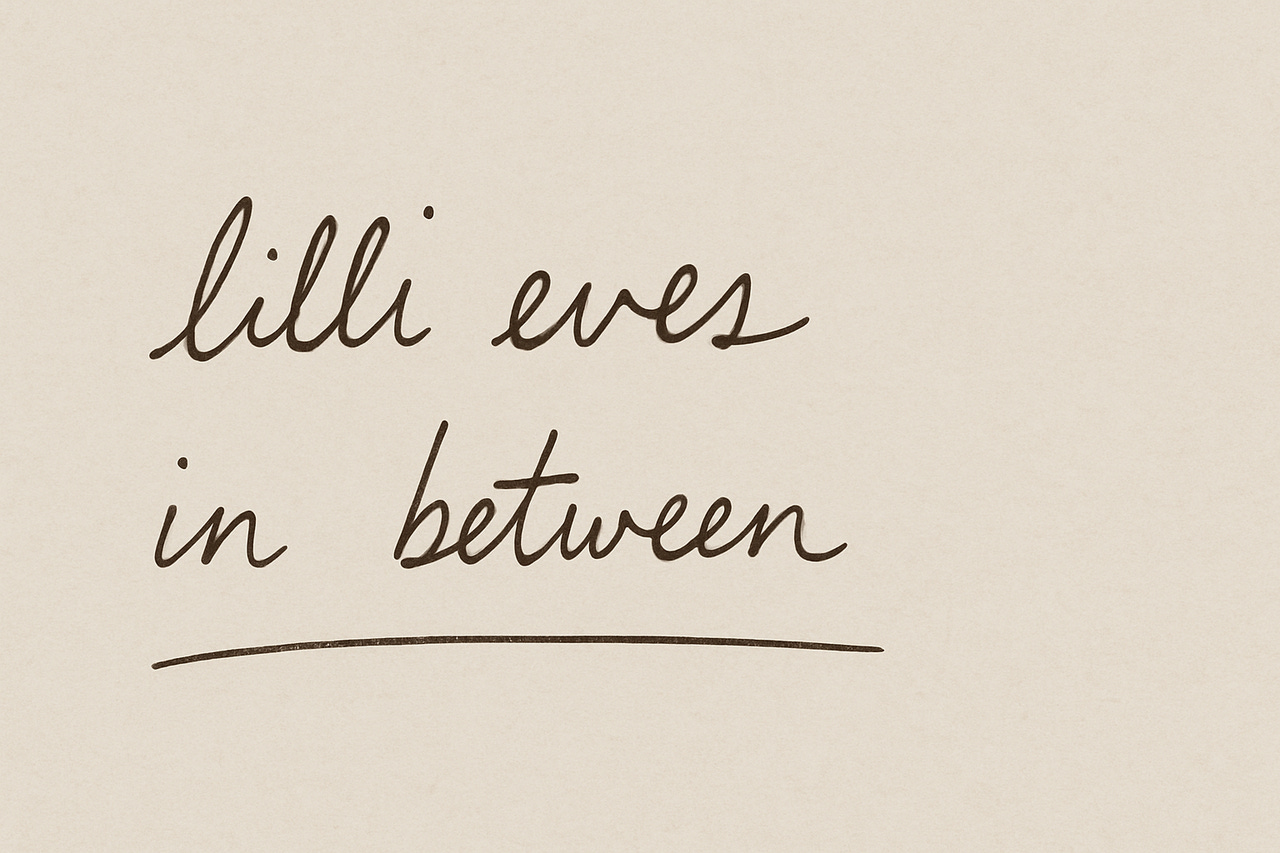 lilli eves
in between